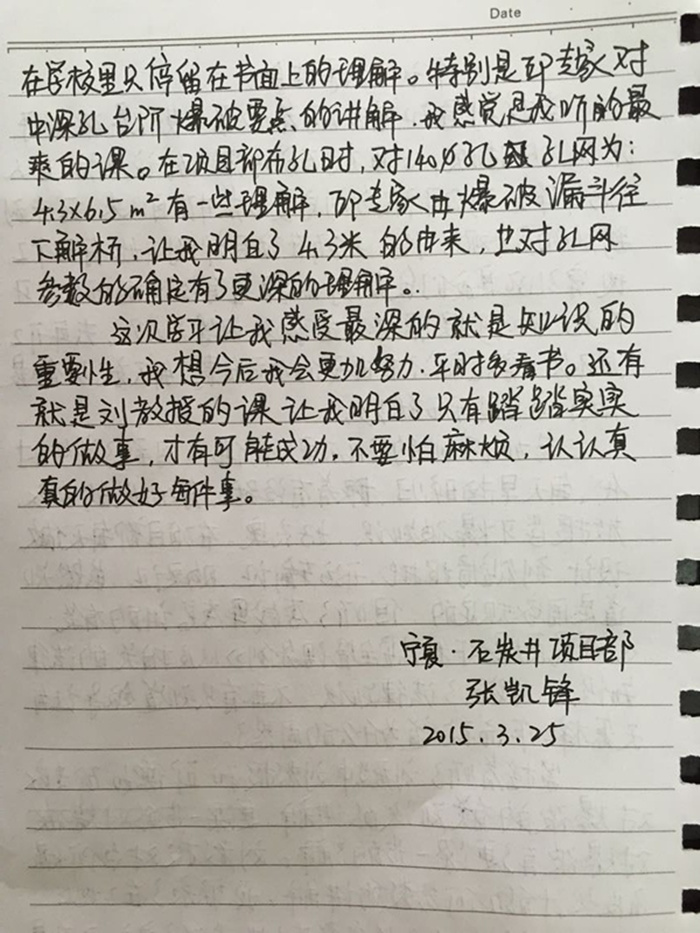 Date
在学校里只停留在书面上的理解。特别是邵专家对
中深孔台阶爆破要点的讲解，我感觉是我听的最
爽的课。在项目部布孔时，对140∮孔 孔网为：
4.3×6.5m²有一些理解，邵专家由爆破漏斗往
下解析，让我明白了4.3米的由来，也对孔网
参数的确定有了更深的理解。
这次学习让我感受最深的就是知识的
重要性，我想今后我会更加努力，平时多看书。还有
就是刘教授的课让我明白了只有踏踏实实
的做事，才有可能成功，不要怕麻烦，认认真
真的做好每件事。
宁夏·石炭井项目部
张凯锋
2015.3.25